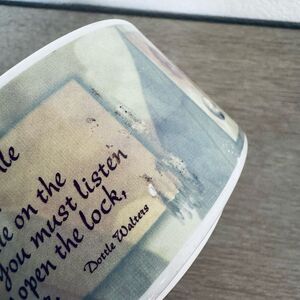 le
le on the
you must listen
open the lock,
Dottie Walters